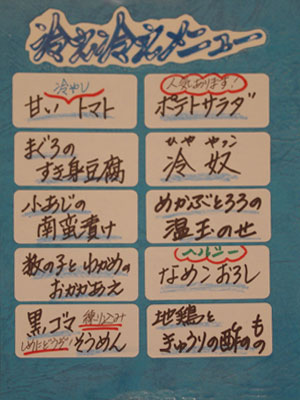 冷え冷えメニュー
冷やし
甘い トマト
人気あります!
ポテトサラダ
まぐろの
すき身豆腐
ひややっこ
冷奴
小あじの
南蛮漬け
めかぶとろろの
温玉のせ
数の子とわかめの
おかかあえ
ヘルシー
なめこおろし
黒ゴマ 練り込み
しめにどうぞ! そうめん
地鶏と
きゅうりの酢のもの